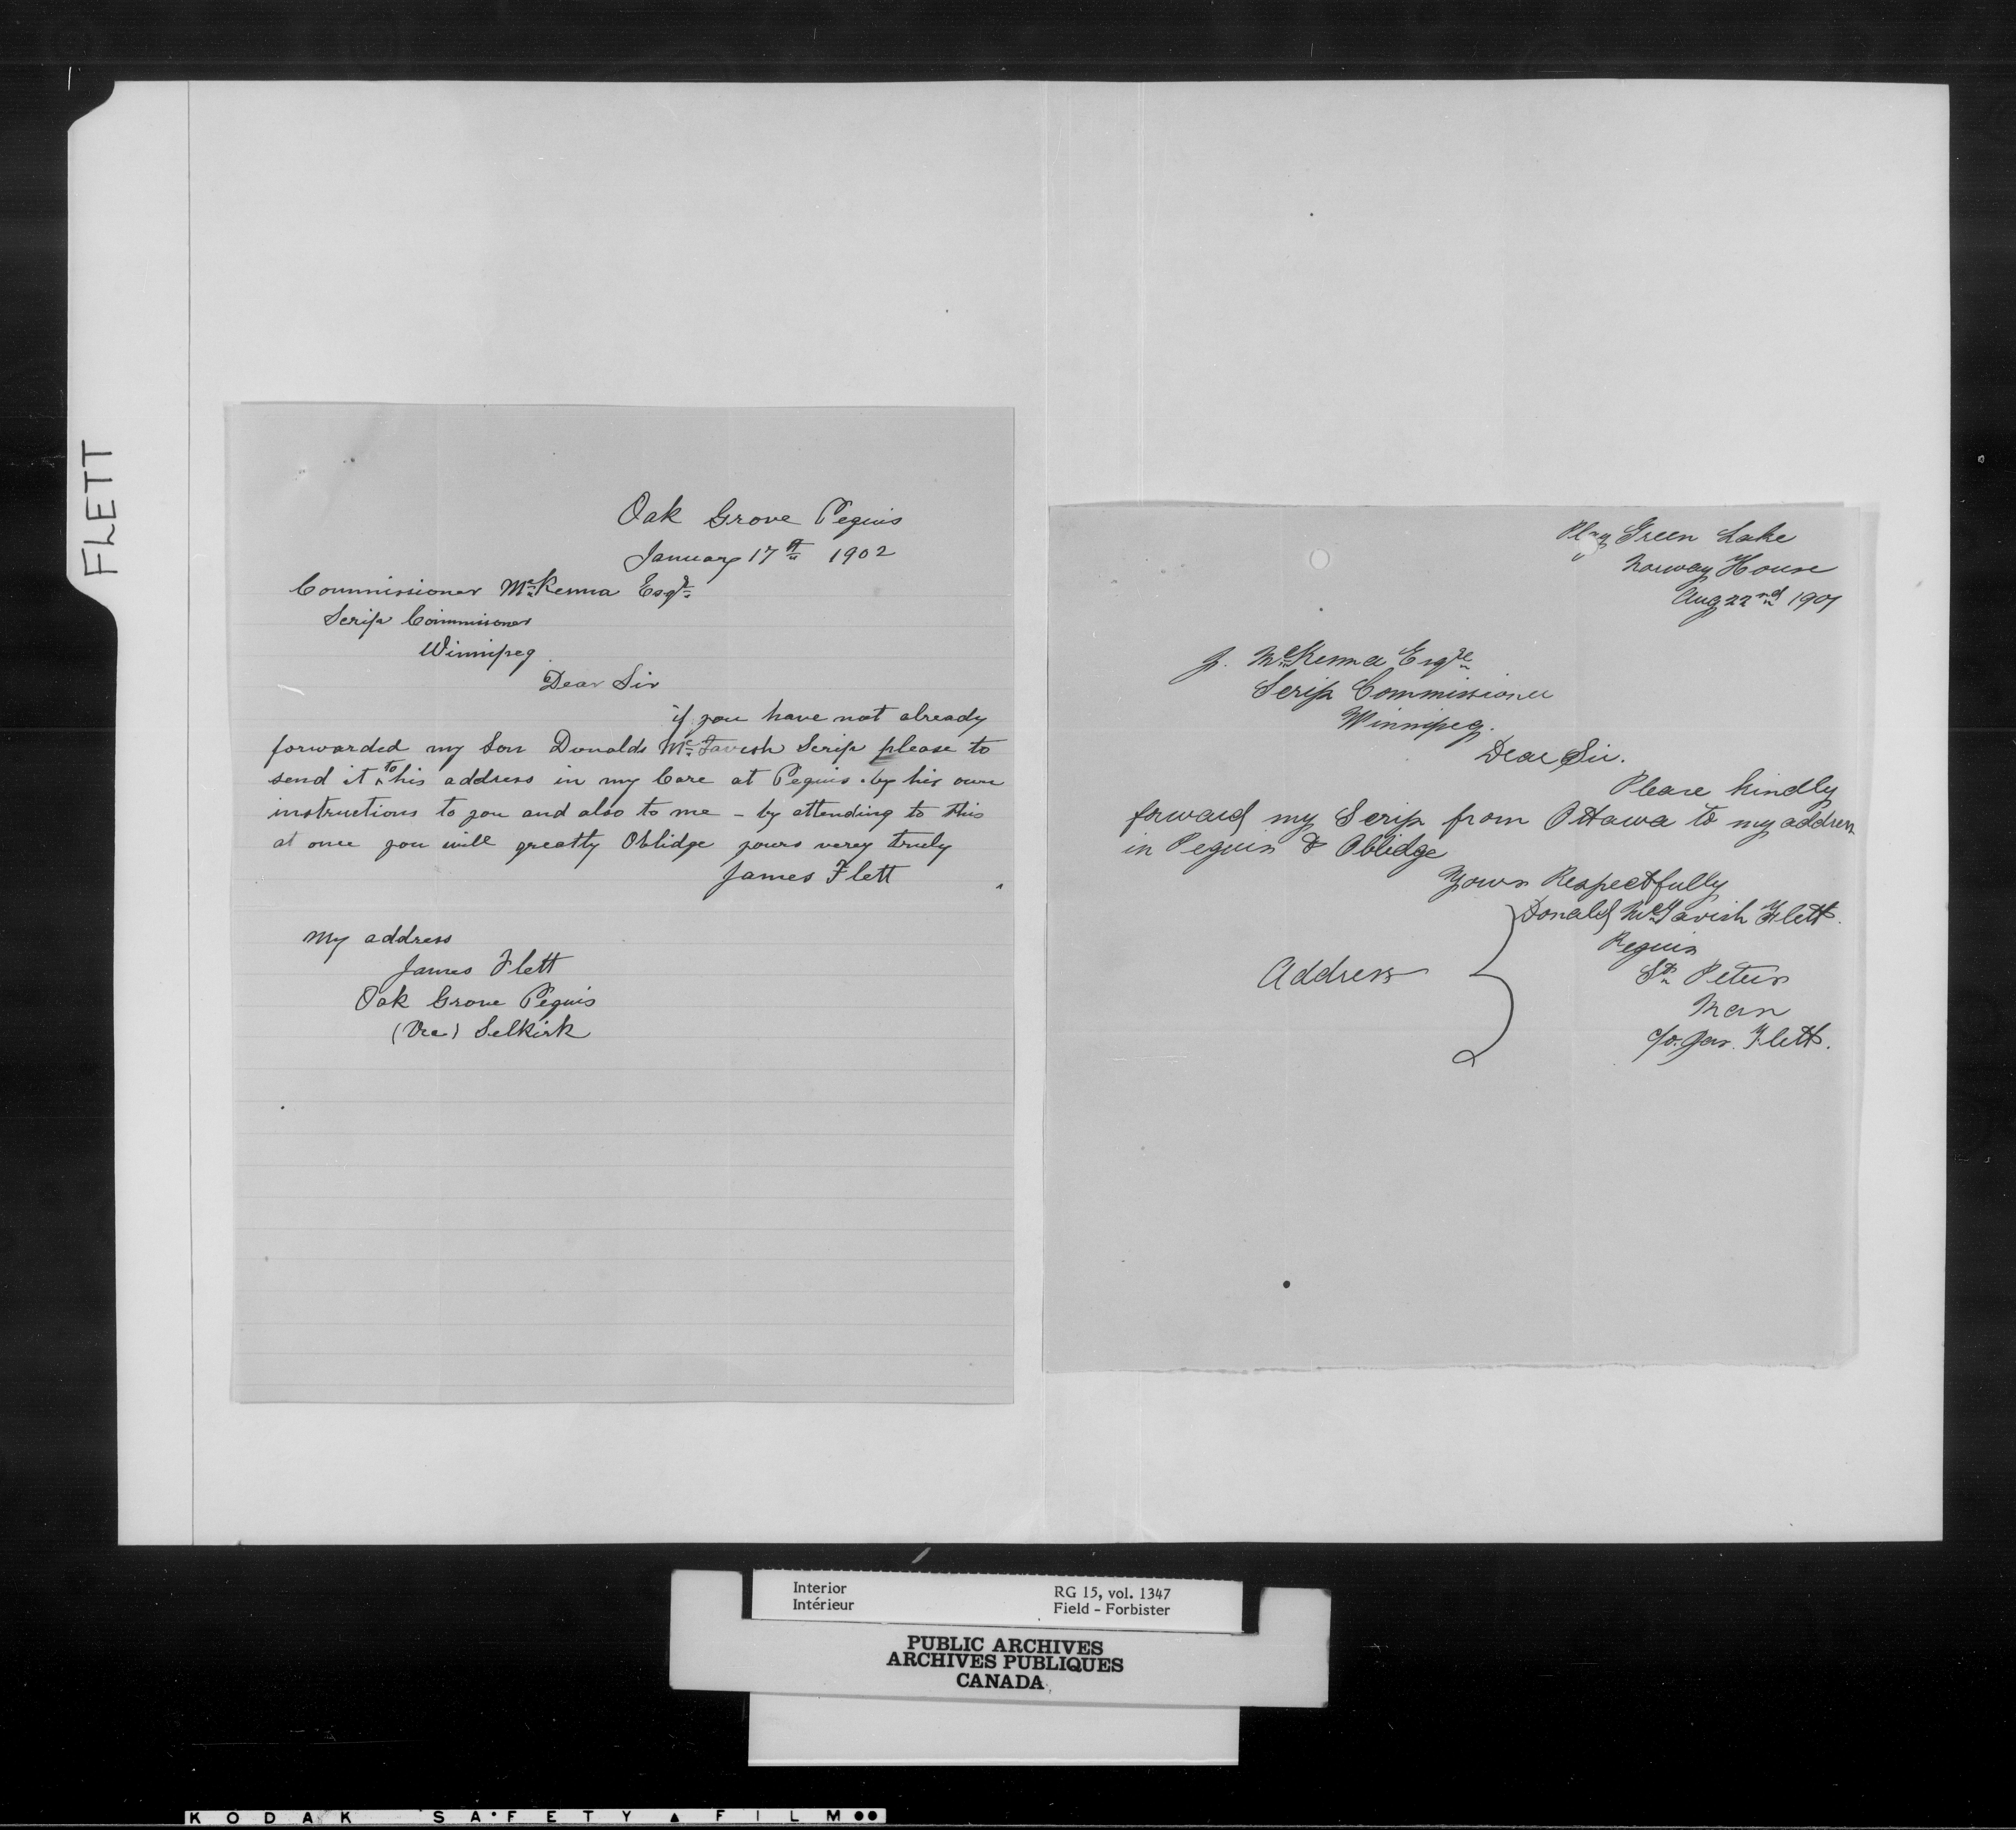 FLETT
Oak Grove Peguis
January 17th 1902
Commissioner McKenna Esqr
Scrip Commissioner
Winnipeg
Dear Sir
if you have not already
forwarded my Son Donalds McTavish Scrip please to
send it to his address in my Care at Peguis. by his own
instructions to you and also to me - by attending to this
at once you will greatly Oblidge yours verey truly
James Flett
My address
James Flett
Oak Grove Peguis
(Via) Selkirk
Play Green Lake
Norway House
Aug 22nd 1901
J. McKenna Esqre
Scrip Commissioner
Winnipeg.
Dear Sir.
Please kindly
forward my Scrip from Ottawa to my address
in Peguis & Oblidge
Yours Respectfully
Donald McTavish Flett.
Address
Peguis
St Peters
Man
c/o. Jas. Flett.
Interior
Intérieur
RG 15, vol. 1347
Field - Forbister
PUBLIC ARCHIVES
ARCHIVES PUBLIQUES
CANADA
KODAK SAFETY FILM